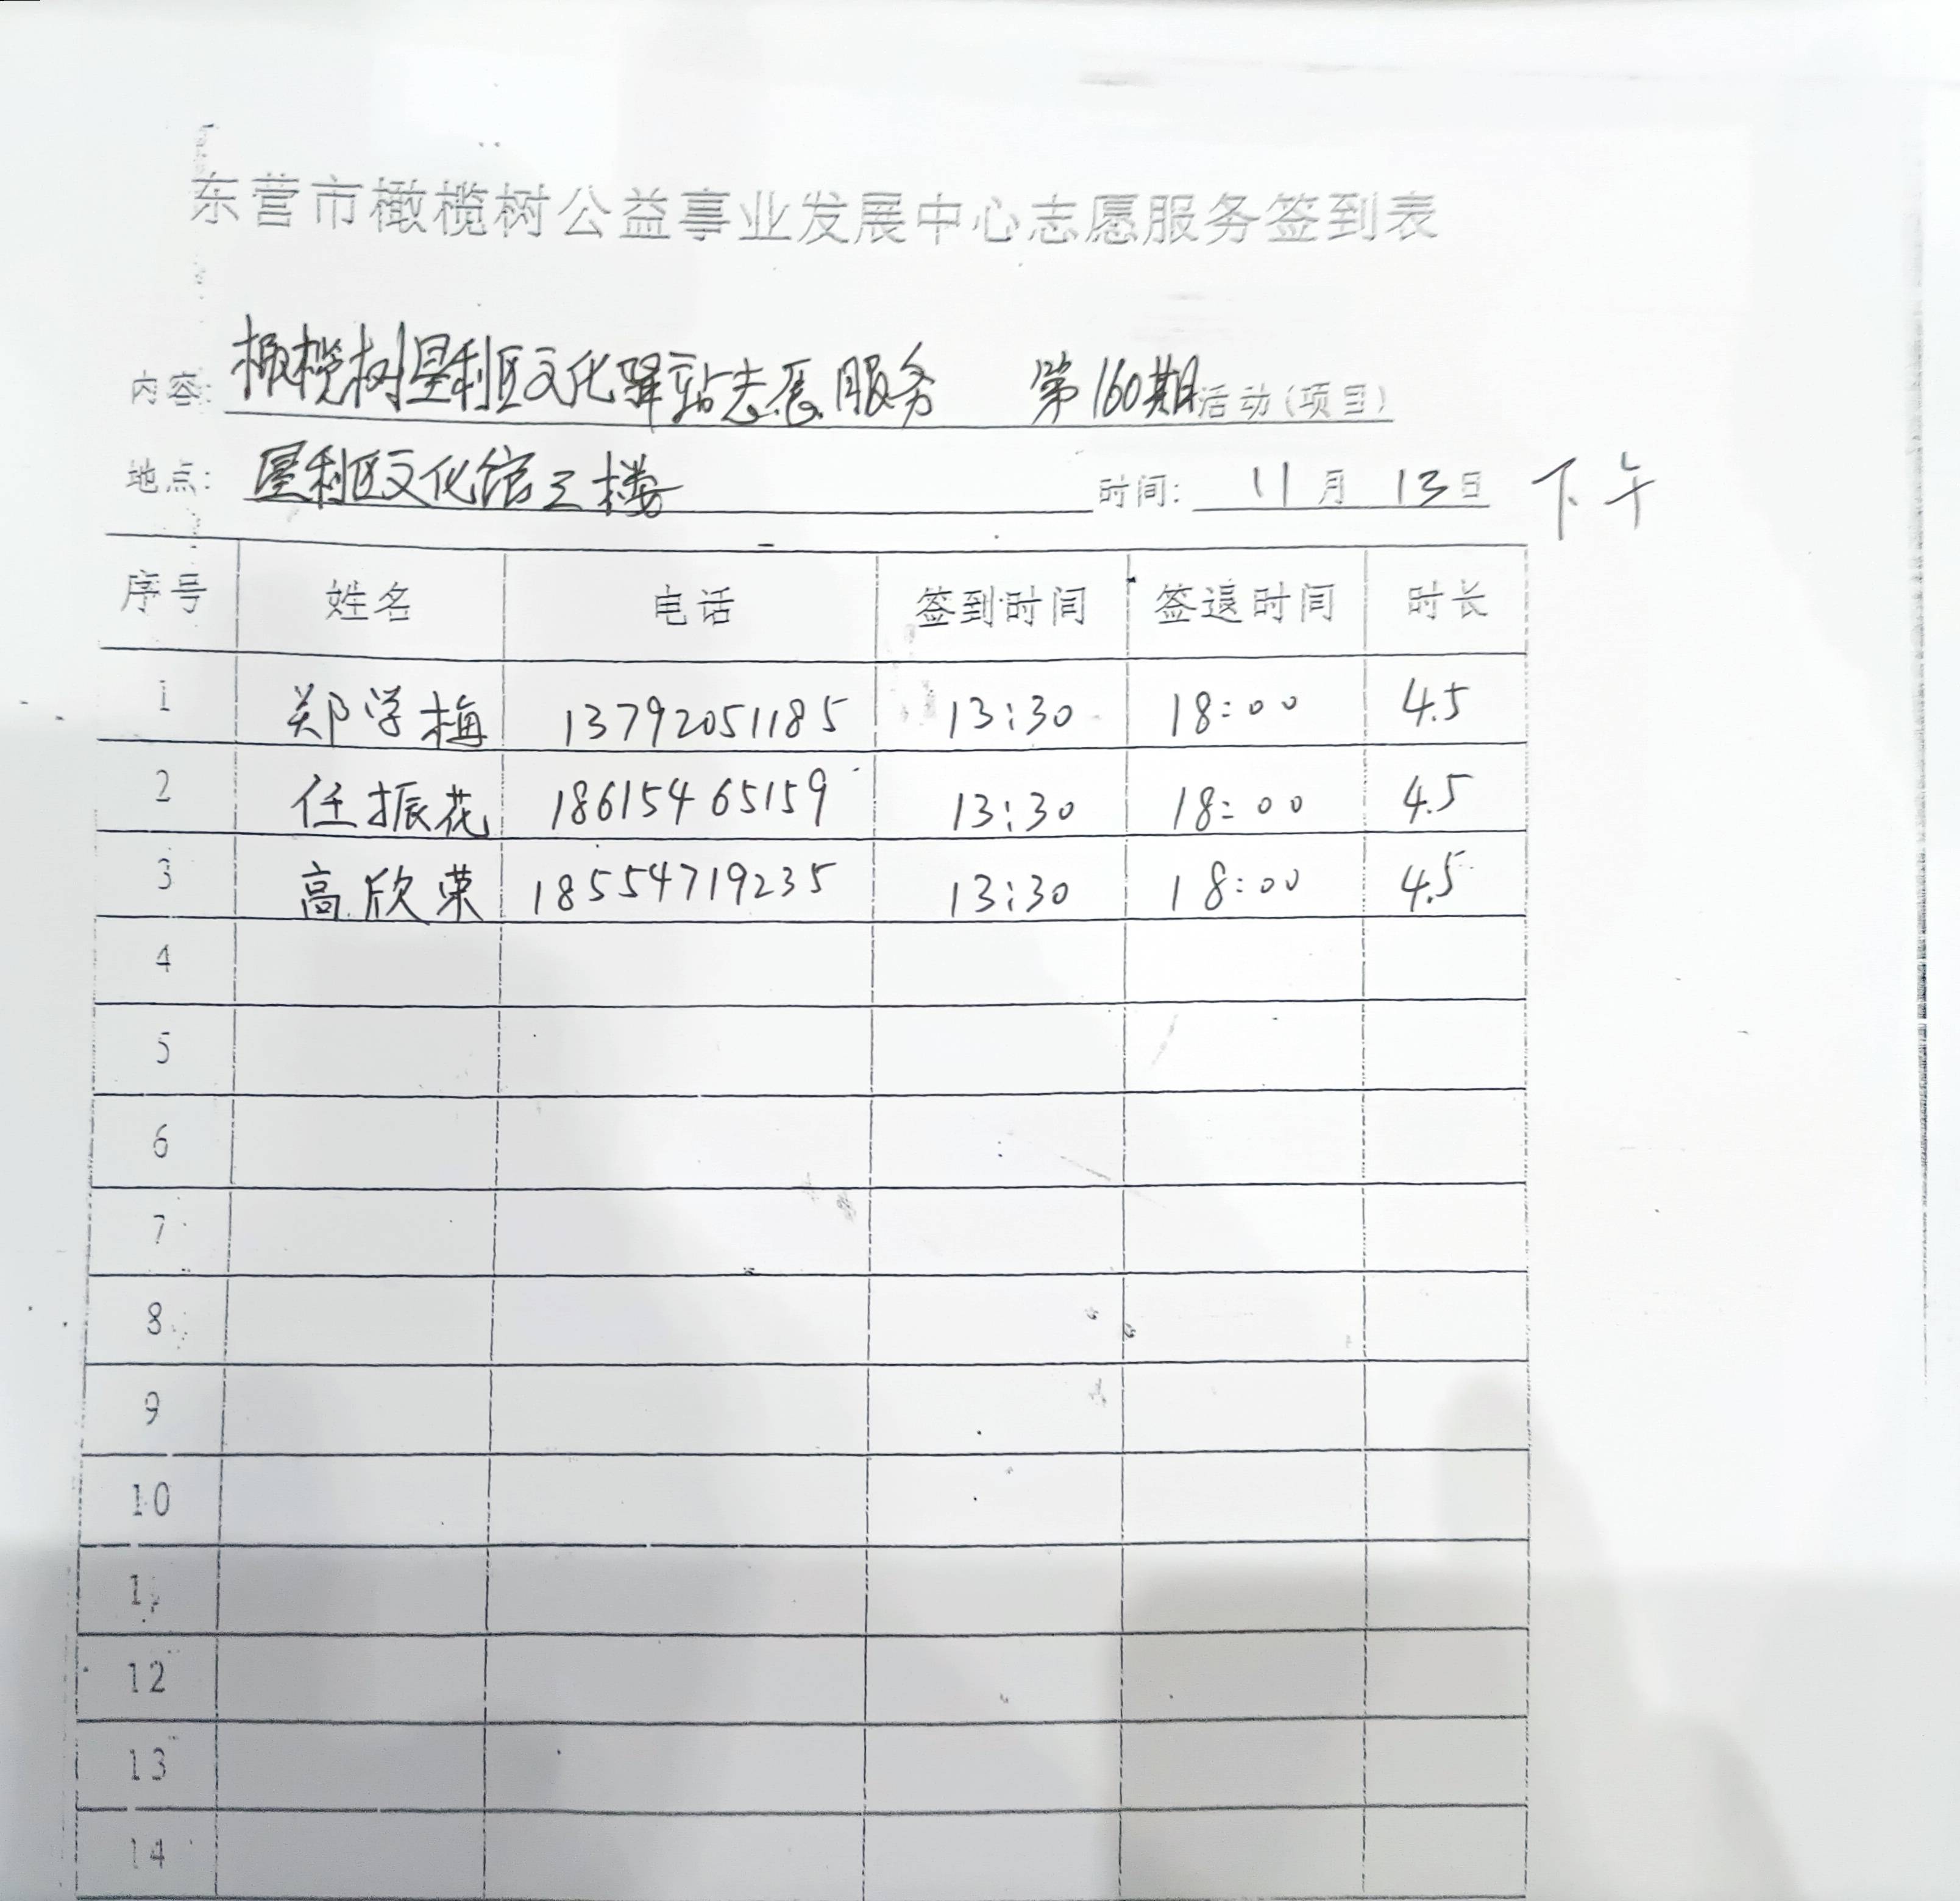 东营市橄榄树公益事业发展中心志愿服务签到表
内容: 橄榄树垦利区文化驿站志愿服务 第160期活动(项目)
地点: 垦利区文化馆三楼 时间: 11月13日 下午
序号 姓名 电话 签到时间 签退时间 时长
1 郑学梅 13792051185 13:30 18:00 4.5
2 任振花 18615465159 13:30 18:00 4.5
3 高欣荣 18554719235 13:30 18:00 4.5
4
5
6
7
8
9
10
11
12
13
14